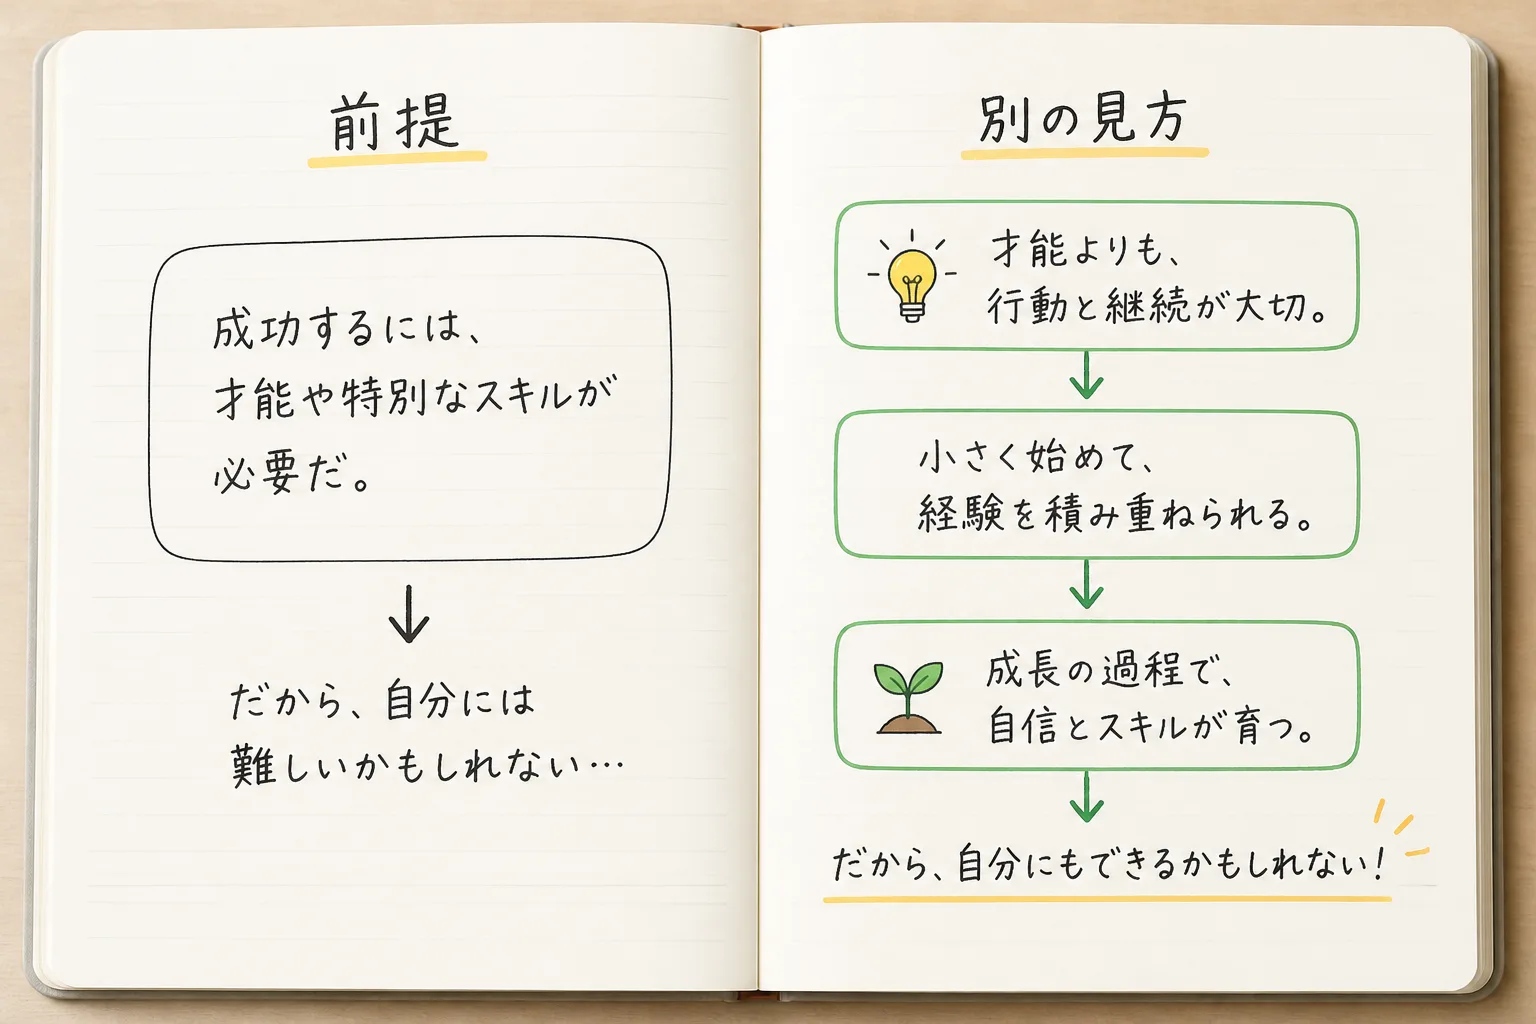 前提
成功するには、
才能や特別なスキルが
必要だ。
だから、自分には
難しいかもしれない…
別の見方
才能よりも、
行動と継続が大切。
小さく始めて、
経験を積み重ねられる。
成長の過程で、
自信とスキルが育つ。
だから、自分にもできるかもしれない！